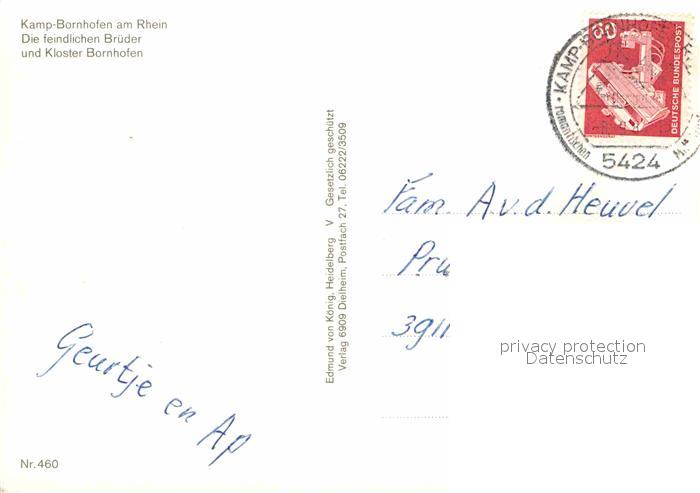 Kamp-Bornhofen am Rhein
Die feindlichen Brüder
und Kloster Bornhofen
60
DEUTSCHE BUNDESPOST
KAMP-BORNHOFEN
romantischen
5424
Edmund von König, Heidelberg V Gesetzlich geschützt
Verlag 6909 Dielheim, Postfach 27, Tel. 06222/3509
Fam. A v. d. Heuvel
Pru
3911
privacy protection
Datenschutz
Geurtje en Ap
Nr. 460